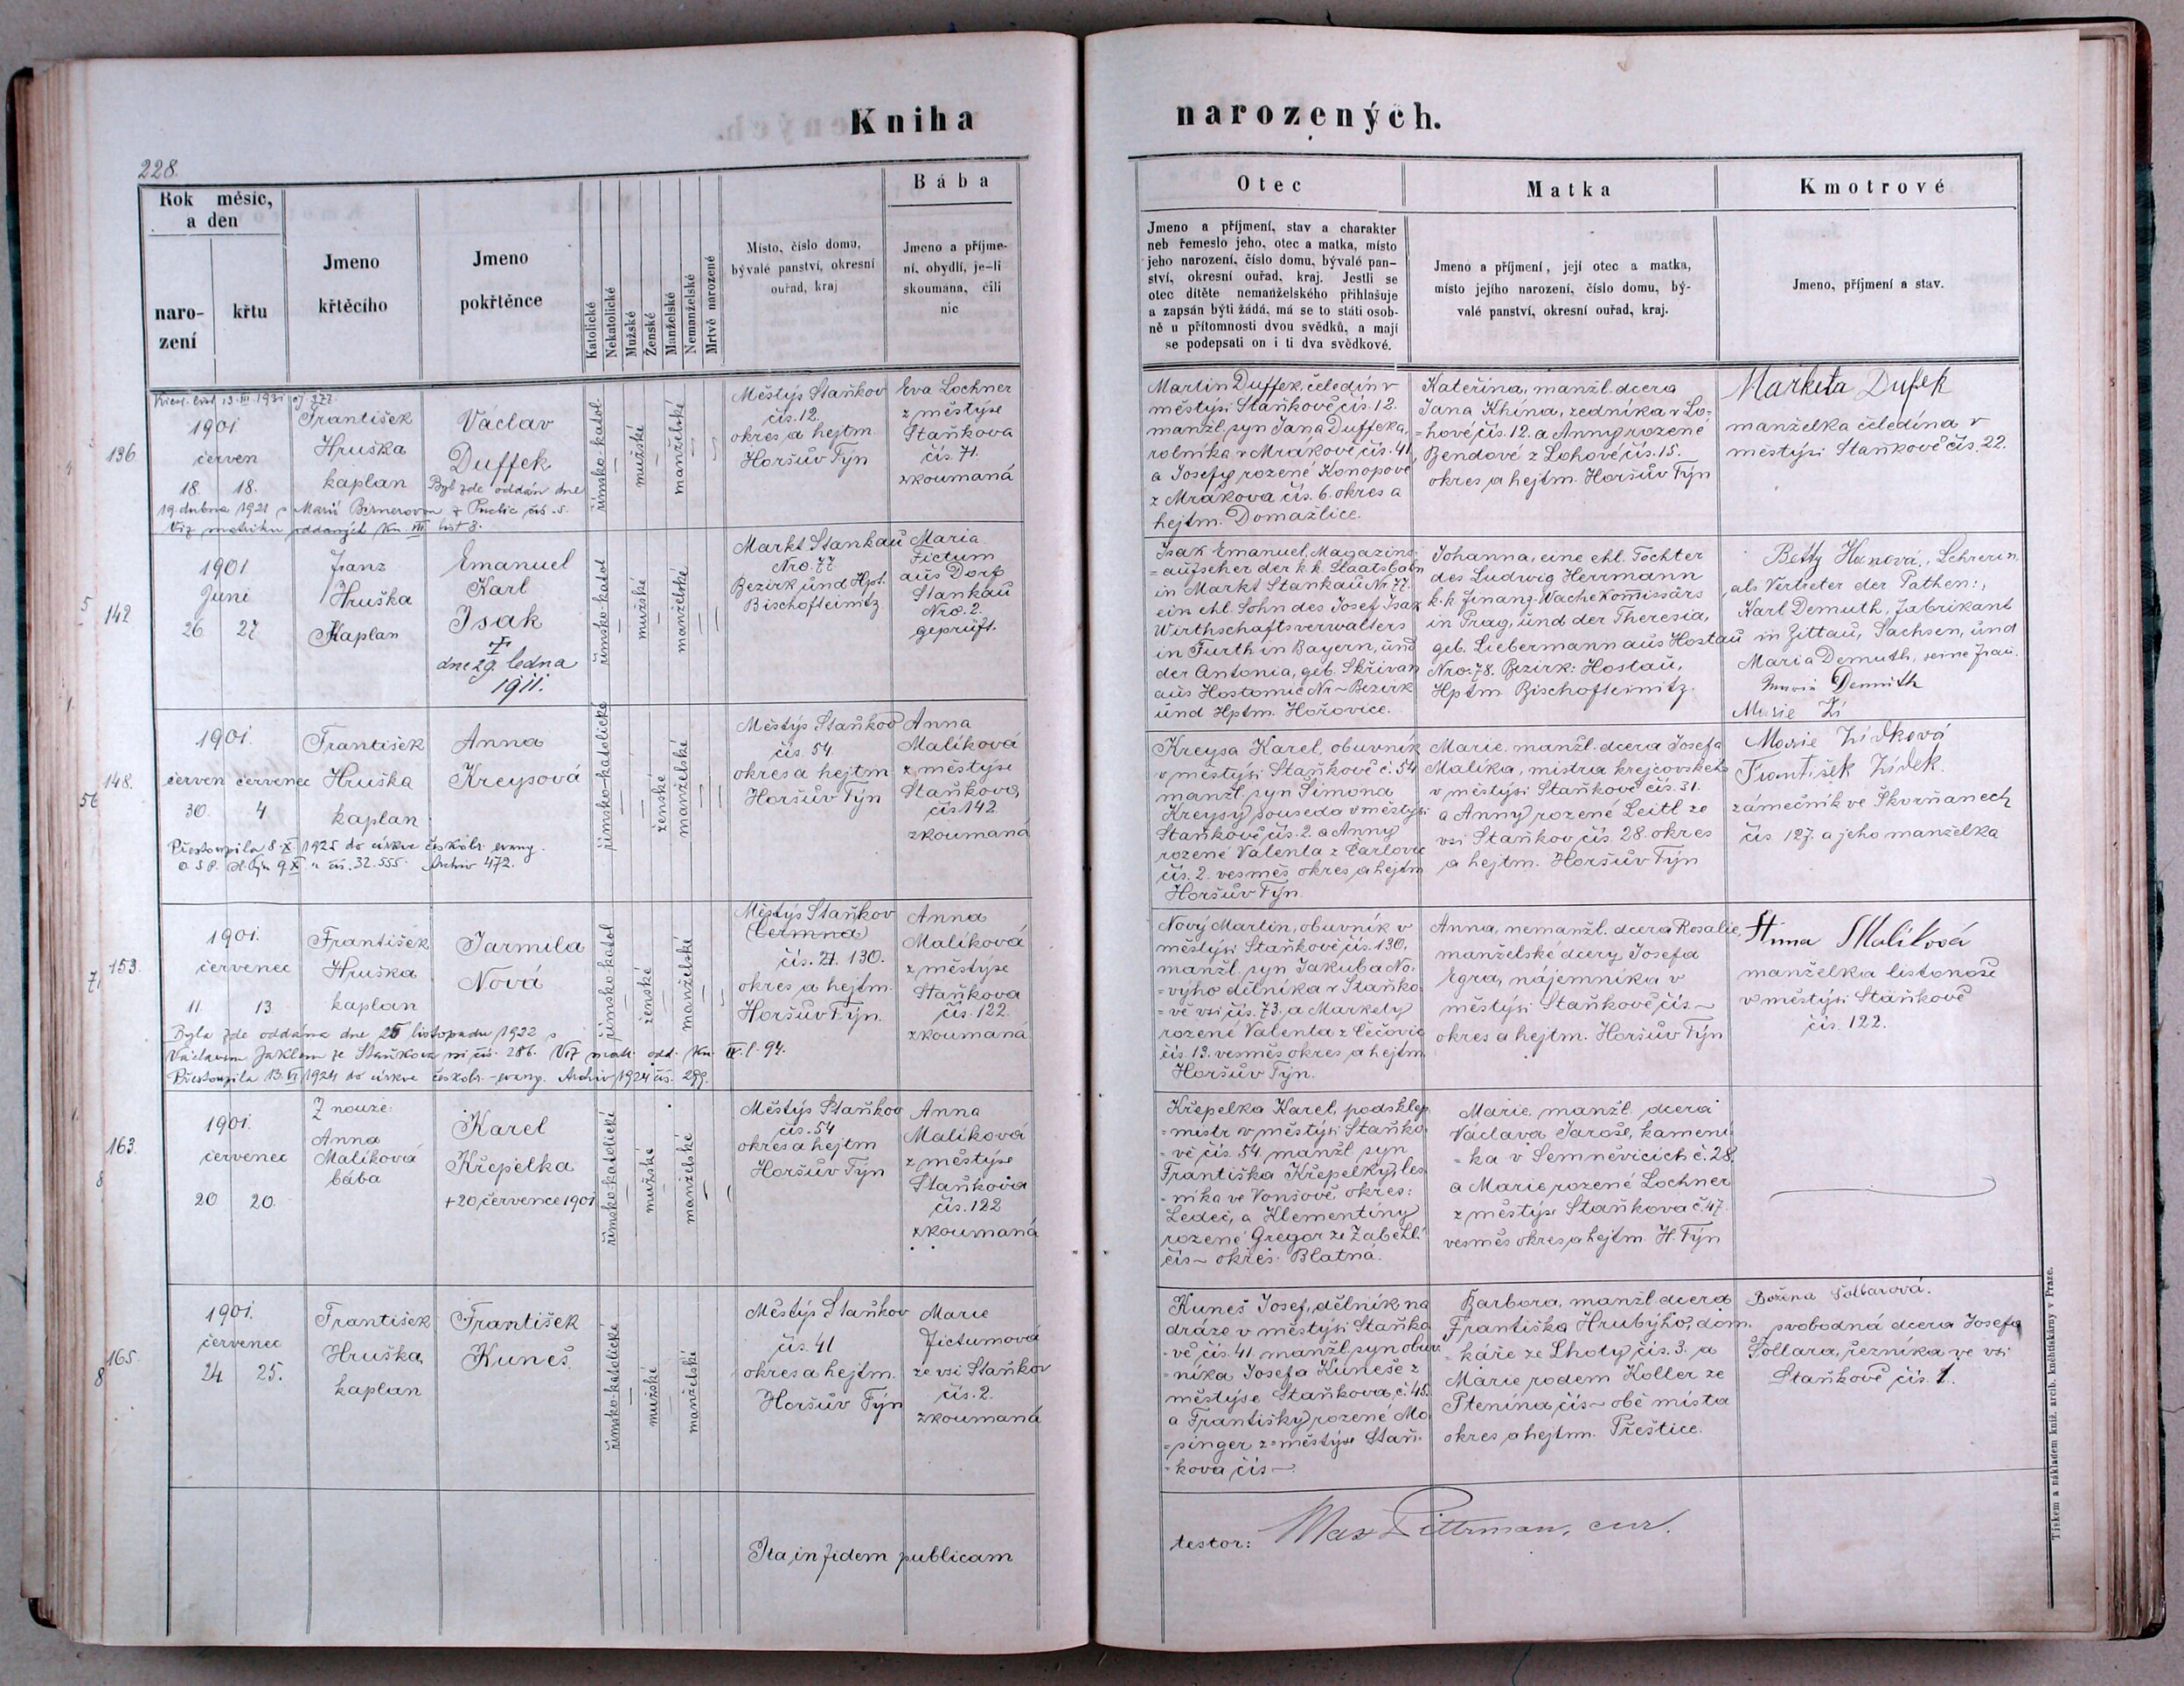 Kniha
narozených.
228.
Rok měsíc,
a den
naro-
zení
křtu
Jmeno
křtěcího
Jmeno
pokřtěnce
Katolické
Nekatolické
Mužské
Ženské
Manželské
Nemanželské
Mrtvě narozené
Místo, číslo domu,
bývalé panství, okresní
ouřad, kraj
Bába
Jmeno a příjme-
ní, obydlí, je-li
skoumána, čili
nic
Otec
Jmeno a příjmení, stav a charakter
neb řemeslo jeho, otec a matka, místo
jeho narození, číslo domu, bývalé pan-
ství, okresní ouřad, kraj. Jestli se
otec dítěte nemanželského přihlašuje
a zapsán býti žádá, má se to státi osob-
ně u přítomnosti dvou svědků, a mají
se podepsati on i ti dva svědkové.
Matka
Jmeno a příjmení, její otec a matka,
místo jejího narození, číslo domu, bý-
valé panství, okresní ouřad, kraj.
Kmotrové
Jmeno, příjmení a stav.
136
Křest. list 13.III.1931 čj. 377.
1901.
červen
18. 18.
František
Hruška
kaplan
Václav
Duffek
Byl zde oddán dne
19. dubna 1921 s Marií
Viz matriku oddaných Kn. VII list 8.
římsko-katol.
mužské
manželské
Městys Staňkov
čís. 12.
okres a hejtm.
Horšův Týn
Eva Lochner
z městyse
Staňkova
čís. 71.
zkoumaná
Martin Duffek, čeledín v
městysi Staňkově čís. 12.
manžl. syn Jana Duffeka,
rolníka v Mrákově čís. 41
a Josefy rozené Konopové
z Mrákova čís. 6. okres a
hejtm. Domažlice.
Kateřina, manžl. dcera
Jana Khina, zedníka v Lo-
=hově čís. 12. a Anny rozené
Bendové z Lohově čís. 15.
okres a hejtm. Horšův Týn
Marketa Dufek
manželka čeledína v
městysi Staňkově čís. 22.
142
1901
Juni
26 27
Franz
Hruška
Kaplan
Emanuel
Karl
Isak
†
dne 29. ledna
1911.
římsko-katol
mužské
manželské
Markt Stankau
Nro. 77
Bezirk und Hpt.
Bischofteinitz
Maria
Fictum
aus Dorf
Stankau
Nro. 2.
geprüft.
Isak Emanuel, Magazins-
=aufseher der k.k. Staatsbahn
in Markt Stankau Nr 77.
ein ehl. Sohn des Josef Isak
Wirthschaftsverwalters
in Furth in Bayern, und
der Antonia, geb. Skřivan
aus Hostomic Nr ~ Bezirk
und Hptm. Hořovice.
Johanna, eine ehl. Tochter
des Ludwig Herrmann
k.k. Finanz-Wache Kommissärs
in Prag, und der Theresia,
geb. Liebermann aus Hostau
Nro: 78. Bezirk: Hostau,
Hptm Bischofteinitz.
Betty Hanová, Lehrerin,
als Vertreter der Pathen:,
Karl Demuth, Fabrikant
in Zittau, Sachsen, und
Maria Demuth, seine Frau.
Maria Demuth
Marie Zí
148.
1901.
červen červenec
30. 4
František
Hruška
kaplan
Anna
Kreysová
Přestoupila 8.X.1925 do církve českobr. evang.
římsko-katolické
ženské
manželské
Městys Staňkov
čís. 54.
okres a hejtm
Horšův Týn
Anna
Malíková
z městyse
Staňkova
čís. 142.
zkoumaná
Kreysa Karel, obuvník
v městysi Staňkově č. 54
manžl. syn Šimona
Kreysy souseda v městysi
Staňkově čís. 2. a Anny
rozené Valenta z Čarlovic
čís. 2. vesměs okres a hejtm
Horšův Týn.
Marie, manžl. dcera Josefa
Malíka, mistra krejčovského
v městysi Staňkově čís. 31.
a Anny rozené Leitl ze
vsi Staňkov čís. 28. okres
a hejtm. Horšův Týn
Marie Zídková
František Zídek
zámečník ve Škvrňanech
čís. 127. a jeho manželka
153.
1901.
červenec
11. 13.
František
Hruška
kaplan
Jarmila
Nová
Byla zde oddána dne 25 listopadu 1922 s
Václavem Jaklem ze Staňkova vsi čís. 286. Viz matr. odd. Kn. IV. l. 94.
Přestoupila 13.VI.1924 do církve českobr.-evang. Archiv 1924 čís. 299.
římsko-katol
ženské
manželské
Městys Staňkov
(Čermna)
čís. 21. 130.
okres a hejtm.
Horšův Týn.
Anna
Malíková
z městyse
Staňkova
čís. 122.
zkoumaná
Nový Martin, obuvník v
městysi Staňkově čís. 130,
manžl. syn Jakuba No-
=výho dělníka v Staňko-
=vě vsi čís. 73. a Markety
rozené Valenta z Čečovic
čís. 13. vesměs okres a hejtm
Horšův Týn.
Anna, nemanžl. dcera Rosalie,
manželské dcery Josefa
Egra, nájemníka v
městysi Staňkově čís ~
okres a hejtm. Horšův Týn
Anna Malíková
manželka listonoše
v městysi Staňkově
čís. 122.
163.
1901.
červenec
20 20.
Z nouze:
Anna
Malíková
bába
Karel
Křepelka
+20. července 1901
římsko-katolické
mužské
manželské
Městys Staňkov
čís. 54
okres a hejtm
Horšův Týn
Anna
Malíková
z městyse
Staňkova
čís. 122
zkoumaná
Křepelka Karel, podsklep-
=mistr v městysi Staňko-
=vě čís. 54, manžl syn
Františka Křepelky, les-
=níka ve Vonšově okres:
Ledeč, a Klementiny
rozené Gregor ze Zabehl.
čís ~ okres: Blatná.
Marie, manžl. dcera
Václava Jaroše, kamení-
=ka v Semněvicích č. 28,
a Marie rozené Lochner
z městyse Staňkova č. 47.
vesměs okres a hejtm. H. Týn
165.
1901.
červenec
24 25.
František
Hruška,
kaplan
František
Kuneš.
římsko-katolické
mužské
manželské
Městys Staňkov
čís. 41
okres a hejtm.
Horšův Týn
Marie
Fictumová
ze vsi Staňkov
čís. 2.
zkoumaná
Kuneš Josef, dělník na
dráze v městysi Staňko-
=vě čís. 41. manžl. syn obuv-
=níka Josefa Kuneše z
městyse Staňkova, č. 45.
a Františky rozené Mo-
=singer z městyse Staň-
=kova čís ~
Barbora, manžl. dcera
Františka Hrubýho, dom-
=káře ze Lhoty čís. 3. a
Marie rodem Koller ze
Ptenína čís ~ obě místa
okres a hejtm. Přeštice.
Božena Šollarová.
svobodná dcera Josefa
Šollara, řezníka ve vsi
Staňkově čís. 1.
Ita in fidem publicam
testor: Max Pittrman, cur.
Tiskem a nákladem kníž. arcib. knihtiskárny v Praze.